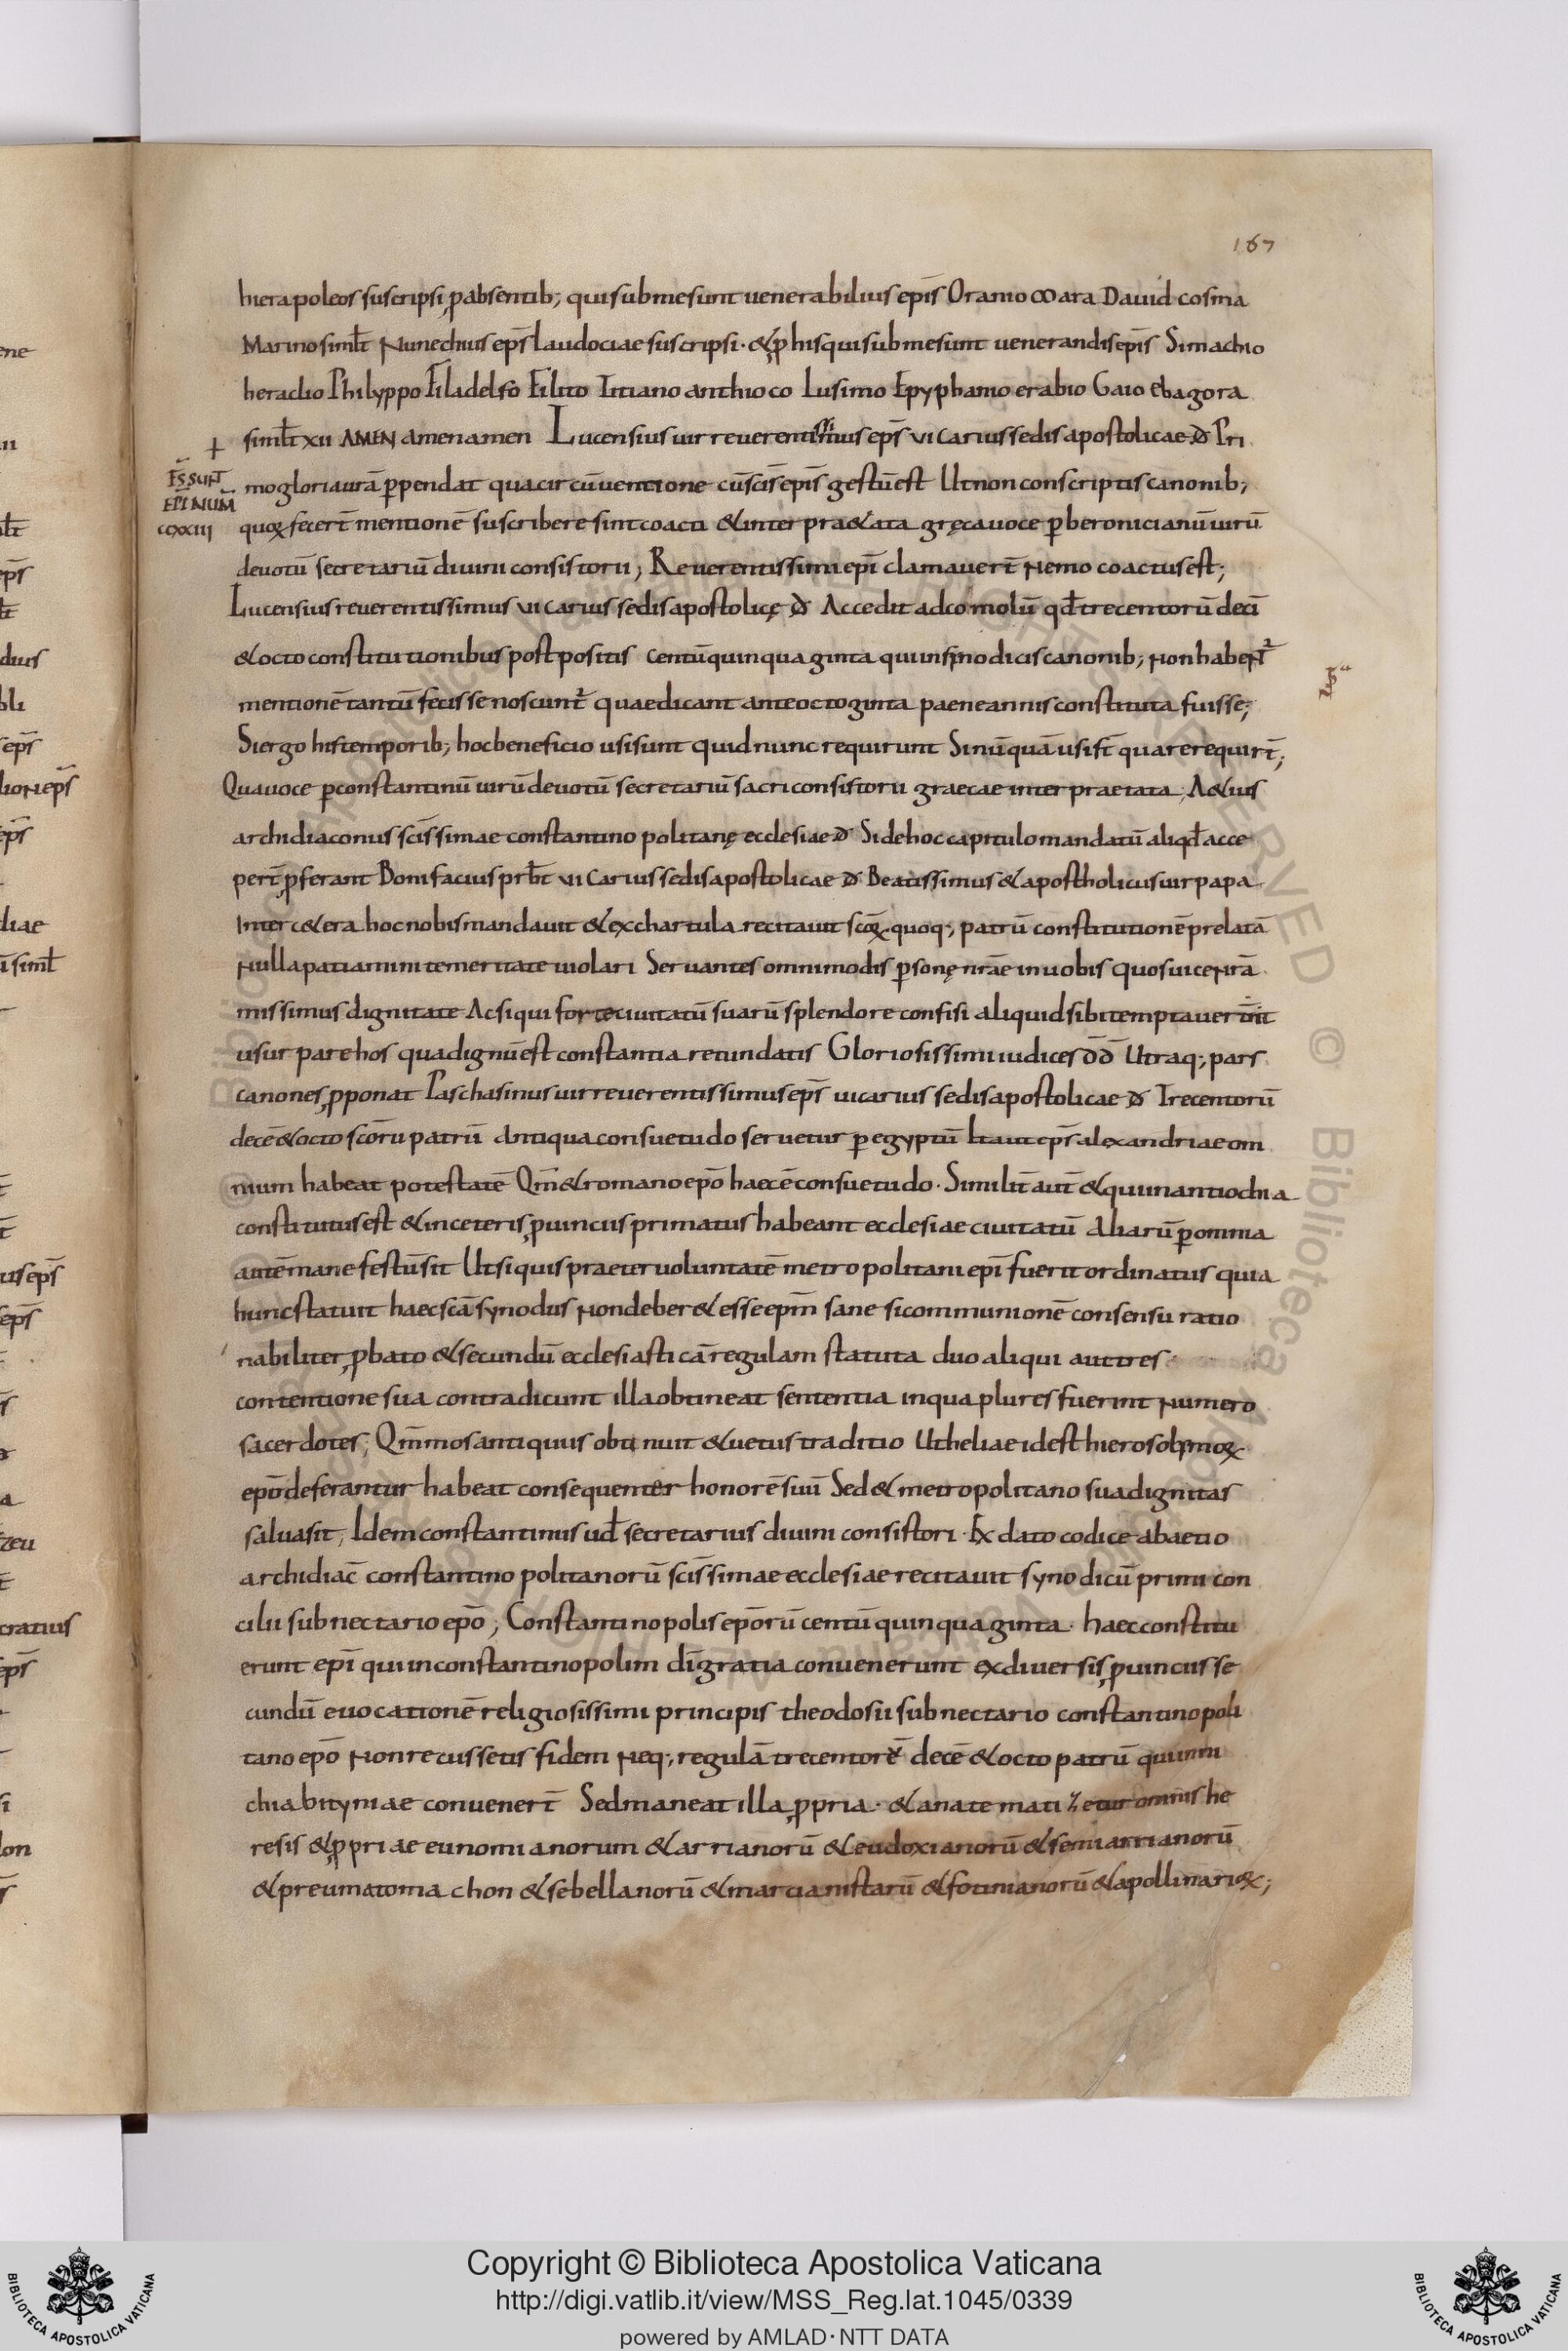 167
hierapoleos suscripsi, pabsentib; qui sub me sunt uenerabilius ep̄is Oranio Mara Dauid cosma
Marino simlt̄ Nunechius ep̄s laudociae suscripsi · & p his qui sub me sunt uenerandis ep̄is Simachio
heraclio Philyppo Filadelfo Filito Titiano anthioco Lusimo Epyphanio erabio Gaio Ebagora
simlt̄ xii AMEN amen amen Lucensius uir reuerentissimus ep̄s uicarius sedis apostolicae d̄ Pri
+
ĪS SUNT
EP̄I NUM̄
CCXXIII
mo gloria urā ꝑpendat qua circūuentione cū sc̄is ep̄is gestū est Ut non conscriptis canonib;
quoꝝ fecer̄t mentionē suscribere sint coacti & inter praelata gręca uoce ꝑ beronicianū uirū
deuotū secretariū diuini consistorii; Reuerentissimi ep̄i clamauer̄t Nemo coactus est;
Lucensius reuerentissimus uicarius sedis apostolicę d̄ Accedit ad comolū qd̄ trecentorū deci
& octo constitutionibus post positis centū quinquaginta qui in sinodicis canonib; non habent̄
mentionē tantū fecisse noscunt̄ quae dicant ante octoginta paene annis constituta fuisse;
Si ergo his temporib; hoc beneficio usi sunt quid nunc requirunt Si nūquā usi st̄ quare requir̄t;
Qua uoce ꝑ constantinū uirū deuotū secretariū sacri consistorii graecae inter praetata; Aetius
archidiaconus sc̄issimae constantinopolitanę ecclesiae d̄ Si de hoc capitulo mandatū aliqd̄ acce
per̄t, pferant Bonifacius prb̄t uicarius sedis apostolicae d̄ Beatissimus & apostholicus uir papa
Inter cetera hoc nobis mandauit & ex chartula recitauit sc̄oꝝ quoq; patrū constitutionē prelatā
Nulla patiamini temeritate uiolari Seruantes omnimodis ꝑsonę nrāe in uobis quos uice nrā
missimus dignitate Ac si qui forte ciuitatū suarū splendore confisi aliquid sibi temptauerint
usurpare hos qua dignū est constantia retundatis Gloriosissimi iudices d̄d̄ Utraq; pars
canones, pponat Paschasinus uir reuerentissimus ep̄s uicarius sedis apostolicae d̄ Trecentorū
decē & octo sc̄orū patrū Antiqua consuetudo seruetur ꝑ egyptū Ita ut ep̄s alexandriae om
nium habeat potestatē Qm̄ & romano ep̄o haec ē consuetudo · Similit̄ aut̄ & qui in antiochia
constitutus est & in ceteris, puinciis primatus habeant ecclesiae ciuitatū Aliarū ꝑ omnia
autē manefestū sit Ut si quis praeter uoluntatē metropolitani ep̄i fuerit ordinatus quia
hunc statuit haec sc̄a synodus non deberet esse ep̄m sane si communionē consensu ratio
nabiliter, pbato & secundū ecclesiasticā regulam statuta duo aliqui aut tres
contentione sua contradicunt illa obtineat sententia in qua plures fuerint numero
sacerdotes; Qm̄ mos antiquus obtinuit & uetus traditio Ut heliae id est hierosolimoꝝ
ep̄o deferantur habeat consequenter honorē suū Sed & metropolitano sua dignitas
salua sit; Idem constantinus ud̄ secretarius diuini consistori · Ex dato codice ab aetio
archidiac̄ constantinopolitanorū sc̄issimae ecclesiae recitauit synodicū primi con
cilii sub nectario ep̄o; Constantinopolis ep̄orū centū quinquaginta · haec constitu
erunt ep̄i qui in constantinopolim dī gratia conuenerunt ex diuersis, puinciis se
cundū euocationē religiosissimi principis theodosii sub nectario constantinopoli
tano ep̄o Non recussetis fidem neq; regulā trecentorū decē & octo patrū qui in ni
chia bityniae conuener̄t Sed maneat illa, ppria · & anatematizetur omnis he
resis & ppriae eunomianorum & arrianorū & eudoxianorū & semiarrianorū
& preumatomachon & sebellanorū & martianistarū & fotinianorū & apollinarioꝝ;
Copyright © Biblioteca Apostolica Vaticana
http://digi.vatlib.it/view/MSS_Reg.lat.1045/0339
powered by AMLAD·NTT DATA
BIBLIOTECA APOSTOLICA VATICANA
BIBLIOTECA APOSTOLICA VATICANA